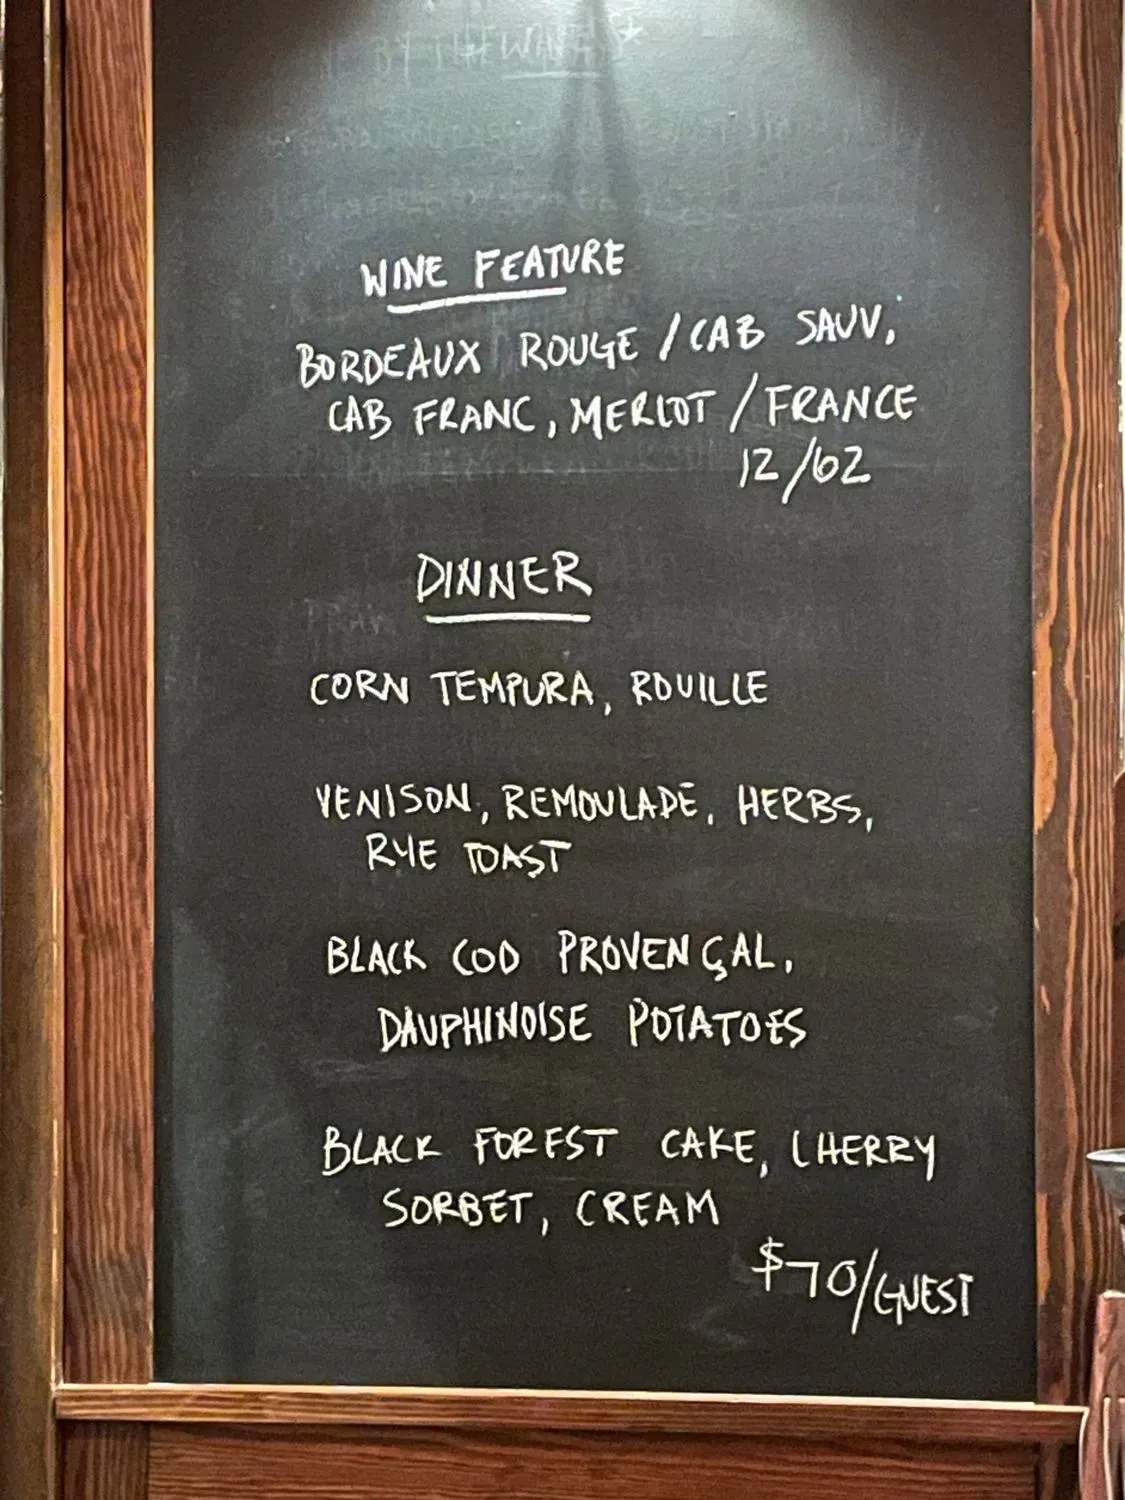 BY THE WAVES *
WINE FEATURE
BORDEAUX ROUGE / CAB SAUV,
CAB FRANC, MERLOT / FRANCE
12/62
DINNER
CORN TEMPURA, ROUILLE
VENISON, REMOULADE, HERBS,
RYE TOAST
BLACK COD PROVENÇAL,
DAUPHINOISE POTATOES
BLACK FOREST CAKE, CHERRY
SORBET, CREAM
$70/GUEST